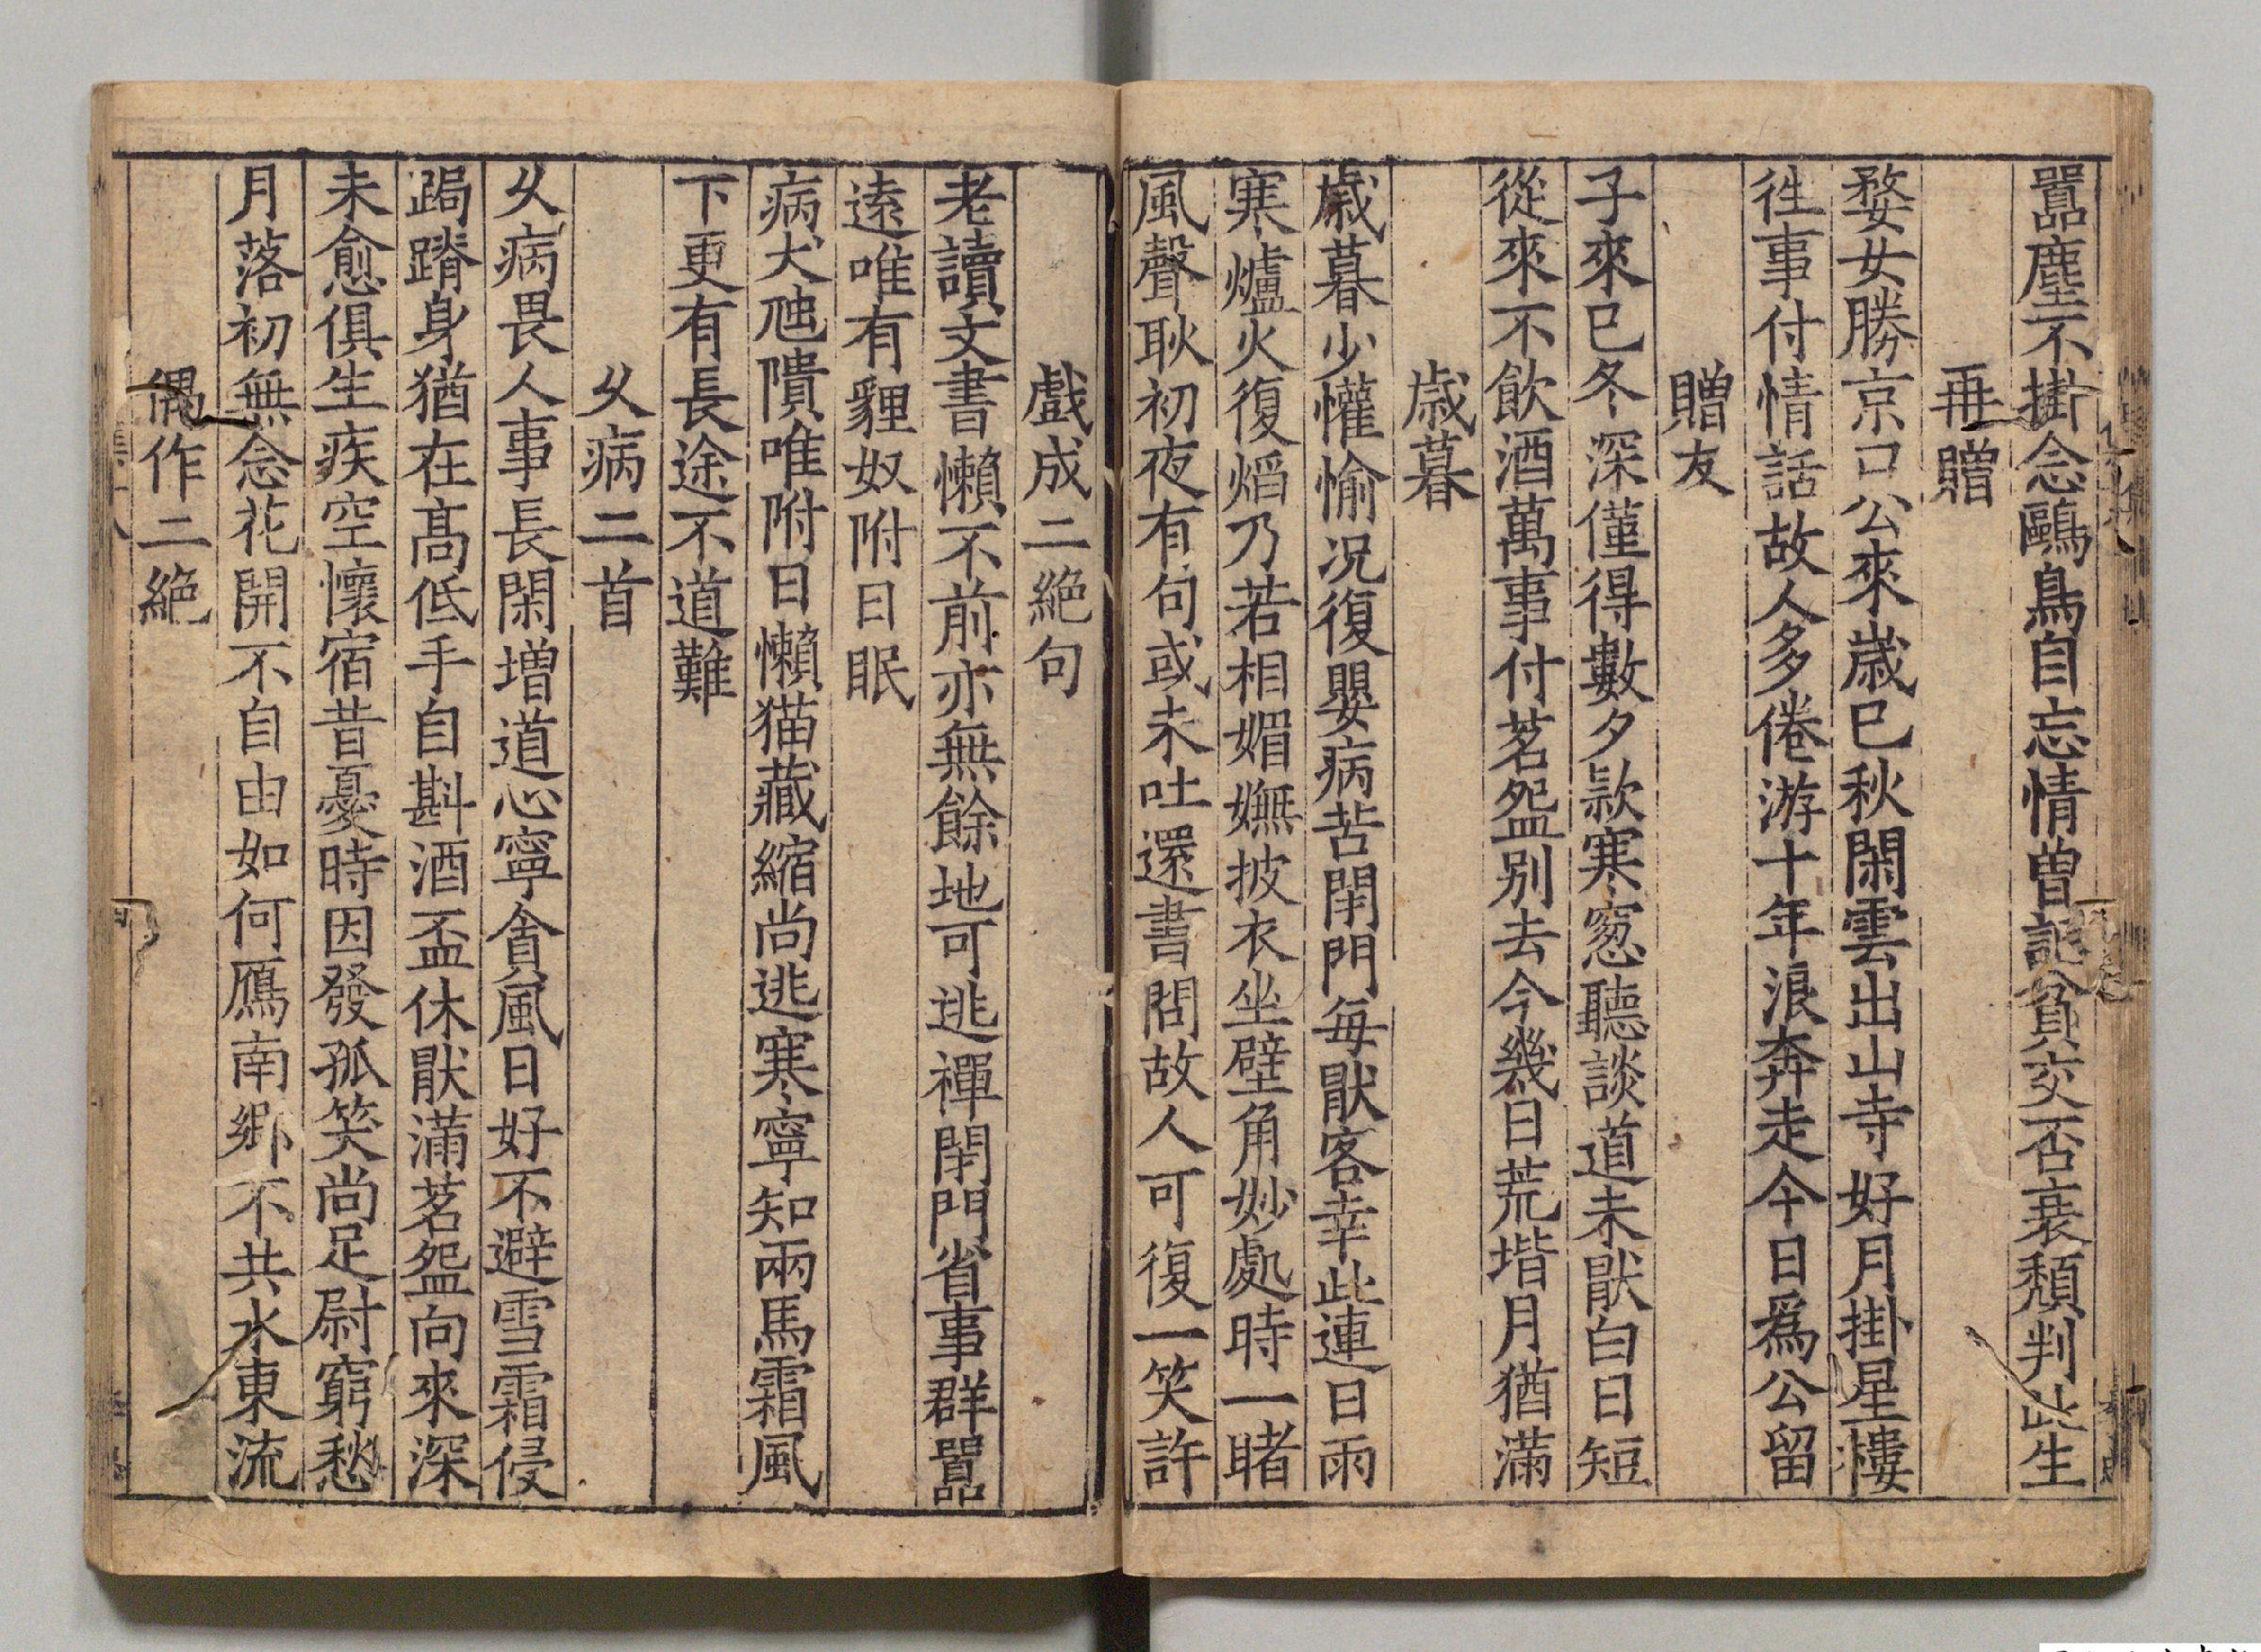 囂塵不掛念鷗鳥自忘情曾記貧交否衰頹判此生
再贈
婺女勝京口公來歲已秋閑雲出山寺好月掛星樓
徃事付情話故人多倦游十年浪奔走今日爲公留
贈友
子來已冬深僅得數夕款寒窓聽談道未猒白日短
從來不飲酒萬事付茗盌別去今幾日荒堦月猶滿
歲暮
歲暮少懽愉况復嬰病苦閉門每猒客幸此連日雨
寒爐火復熖乃若相媚嫵披衣坐壁角妙處時一睹
風聲耿初夜有句或未吐還書問故人可復一笑許
戲成二絶句
老讀文書懶不前亦無餘地可逃禪閉門省事群囂
逺唯有貍奴附日眠
病犬虺隤唯附日懶猫藏縮尚逃寒寧知兩馬霜風
下更有長途不道難
乆病二首
乆病畏人事長閑增道心寧貪風日好不避雪霜侵
跼蹐身猶在髙低手自斟酒盃休猒滿茗盌向來深
未愈俱生疾空懷宿昔憂時因發孤笑尚足尉窮愁
月落初無念花開不自由如何鴈南鄉不共水東流
偶作二絶